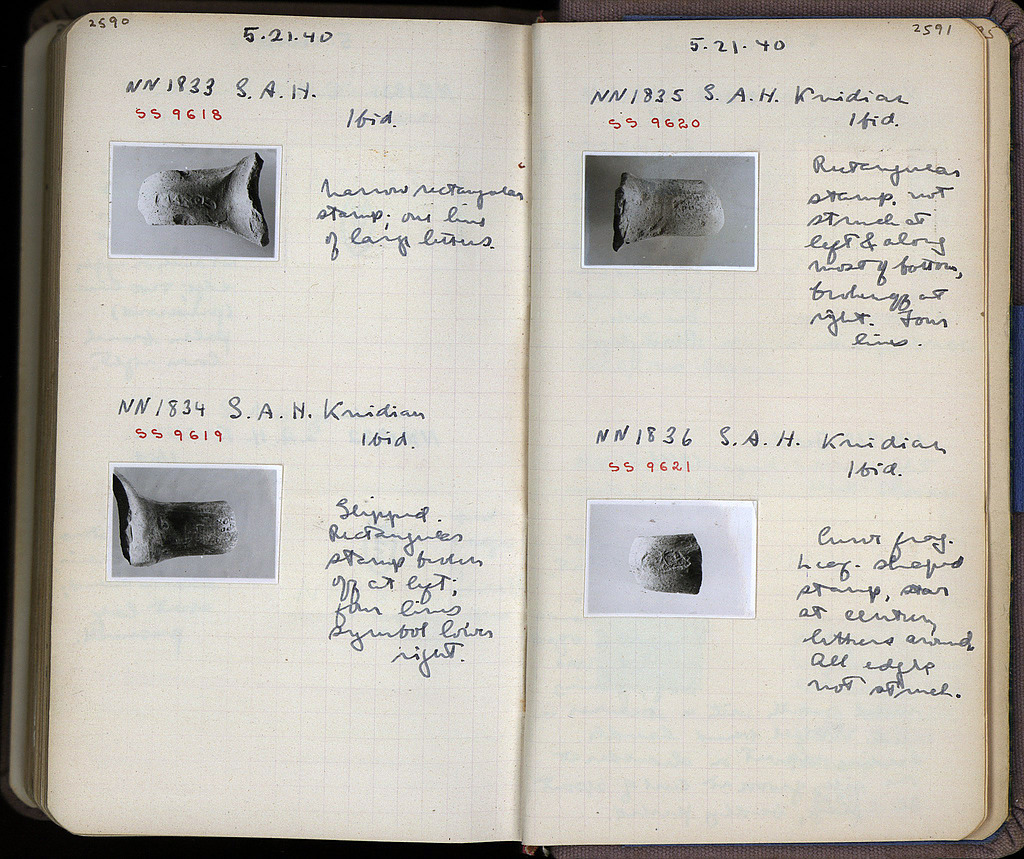 2590
5.21.40
NN1833 S.A.H.
SS 9618
Ibid.
Narrow rectangular
stamp; one line
of large letters.
NN1834 S.A.H. Knidian
SS 9619
Ibid.
Slipped.
Rectangular
stamp broken
off at left;
four lines
symbol lower
right.
2591
5.21.40
NN1835 S.A.H. Knidian
SS 9620
Ibid.
Rectangular
stamp, not
struck at
left & along
most of bottom,
broken off at
right. Four
lines.
NN1836 S.A.H. Knidian
SS 9621
Ibid.
frag.
Leaf-shaped
stamp, star
at center,
letters around
All edges
not struck.